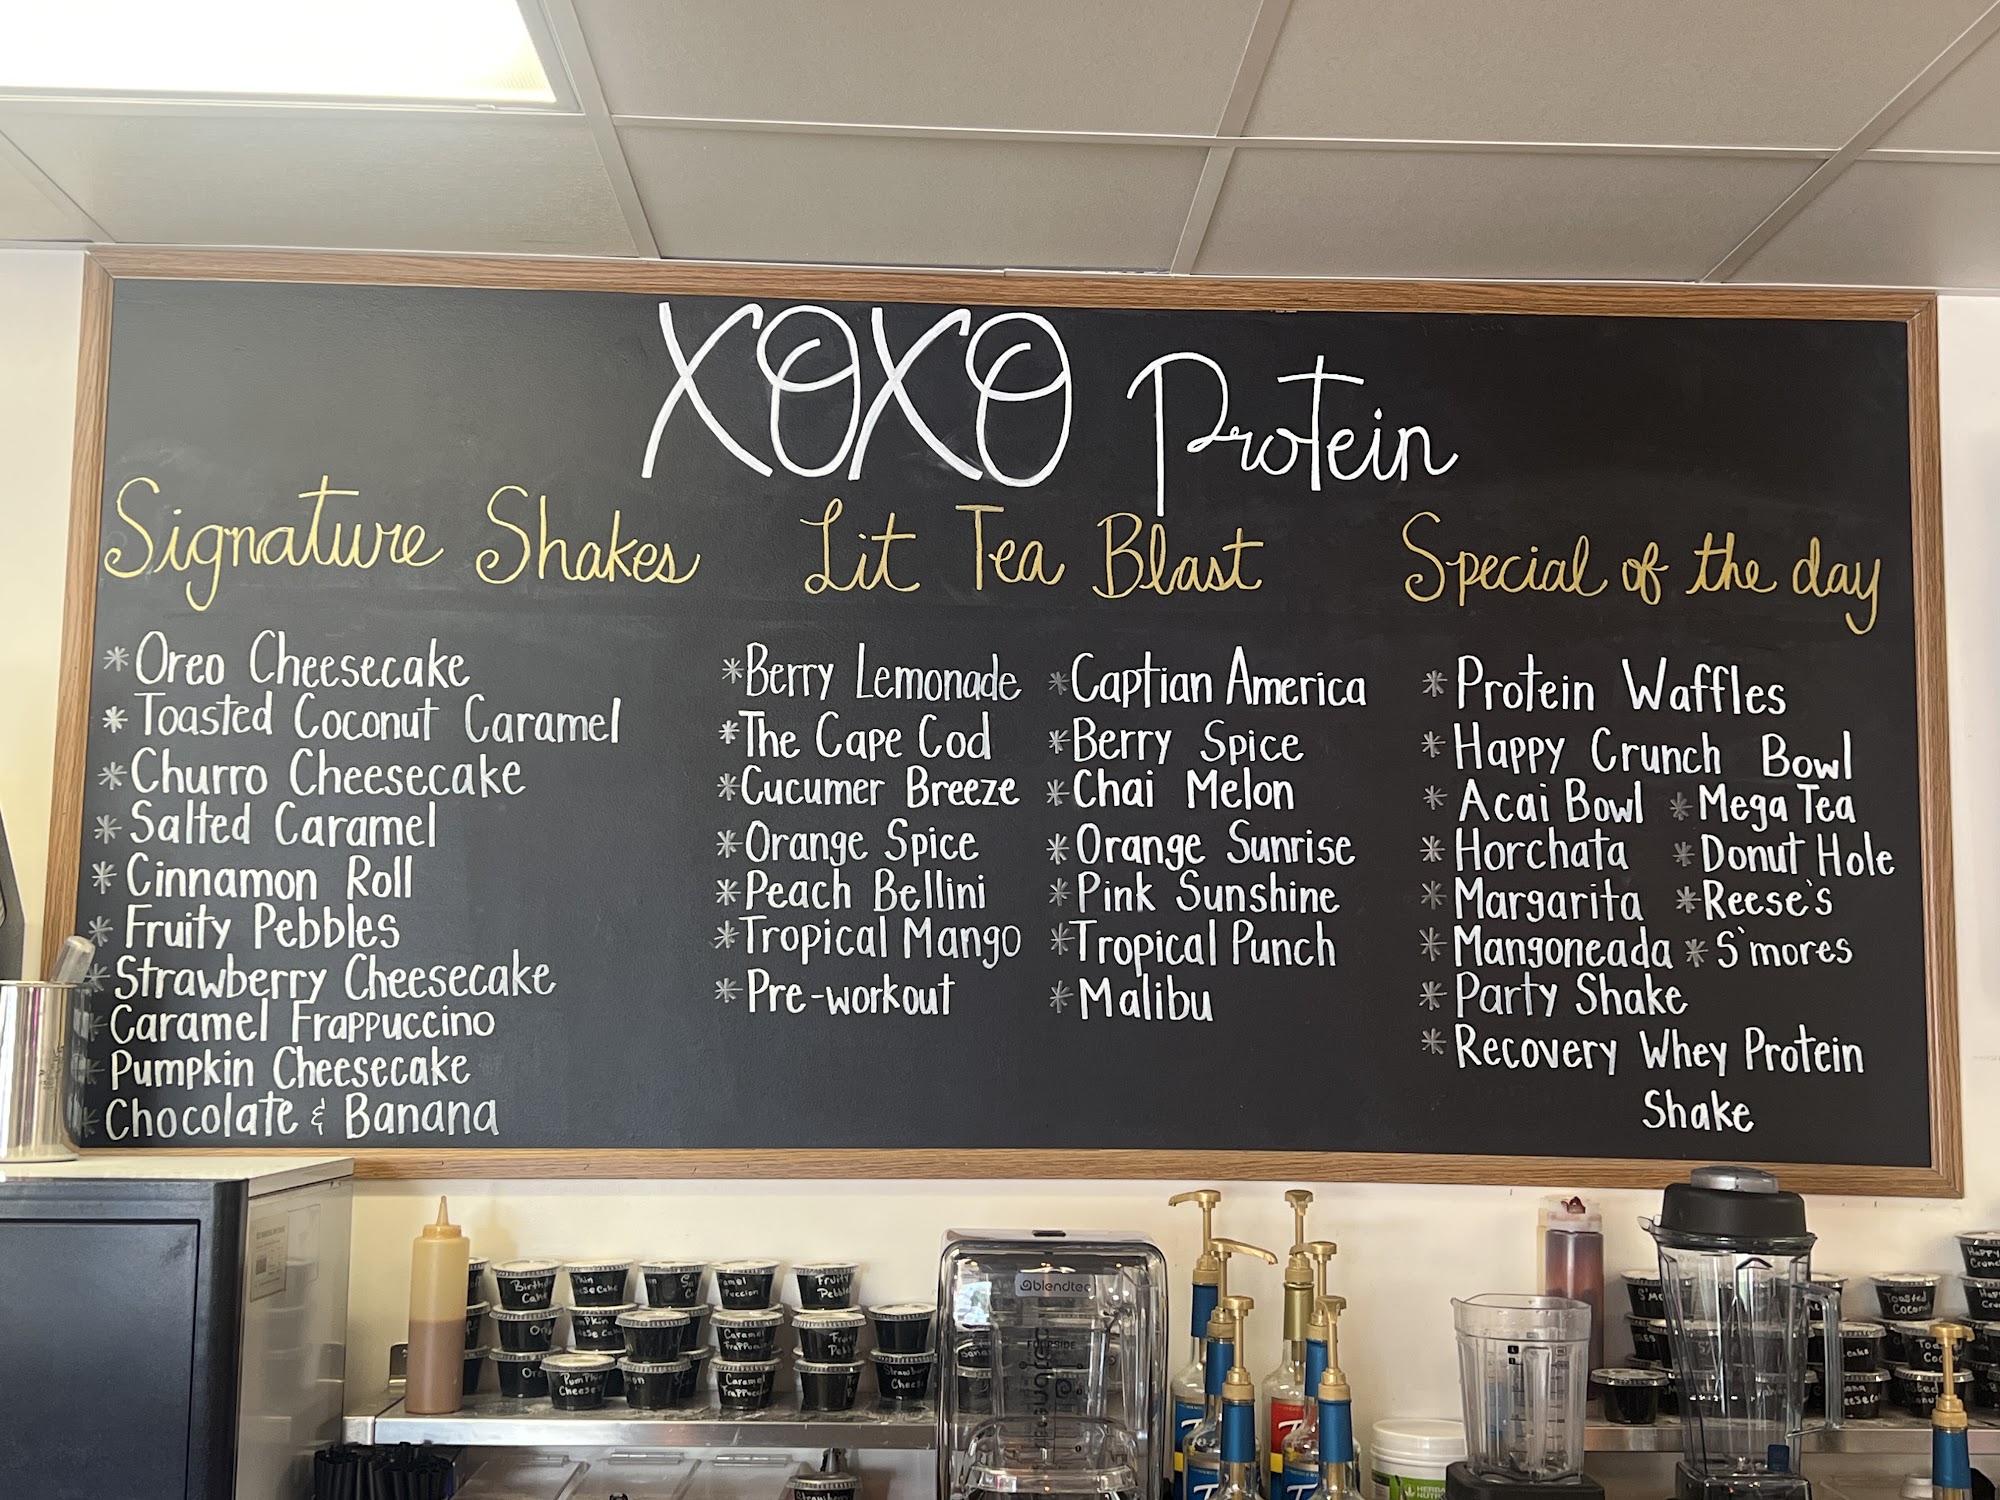 XOXO Protein
Signature Shakes
* Oreo Cheesecake
* Toasted Coconut Caramel
* Churro Cheesecake
* Salted Caramel
* Cinnamon Roll
* Fruity Pebbles
* Strawberry Cheesecake
* Caramel Frappuccino
* Pumpkin Cheesecake
* Chocolate & Banana
Lit Tea Blast
* Berry Lemonade
* The Cape Cod
* Cucumer Breeze
* Orange Spice
* Peach Bellini
* Tropical Mango
* Pre-workout
* Captian America
* Berry Spice
* Chai Melon
* Orange Sunrise
* Pink Sunshine
* Tropical Punch
* Malibu
Special of the day
* Protein Waffles
* Happy Crunch Bowl
* Acai Bowl * Mega Tea
* Horchata * Donut Hole
* Margarita * Reese's
* Mangoneada * S'mores
* Party Shake
* Recovery Whey Protein
Shake
blendtec
Caramel
Frappuccino
Fruity
Pebble
Pumpkin
Cheese
Toasted
Happy
Crunch